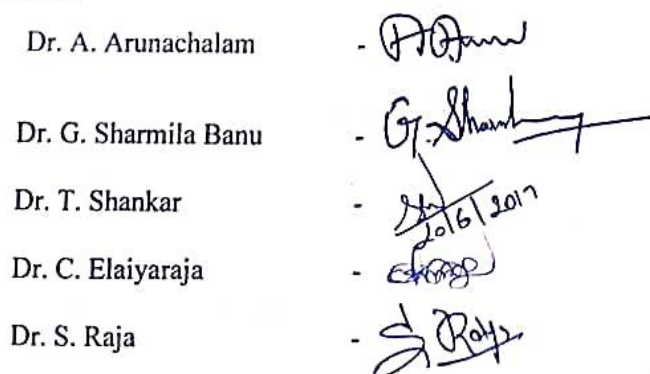 Dr. A. Arunachalam -
Dr. G. Sharmila Banu - G. Sharmi
Dr. T. Shankar -
20/6/2017
Dr. C. Elaiyaraja -
Dr. S. Raja - S. Raja